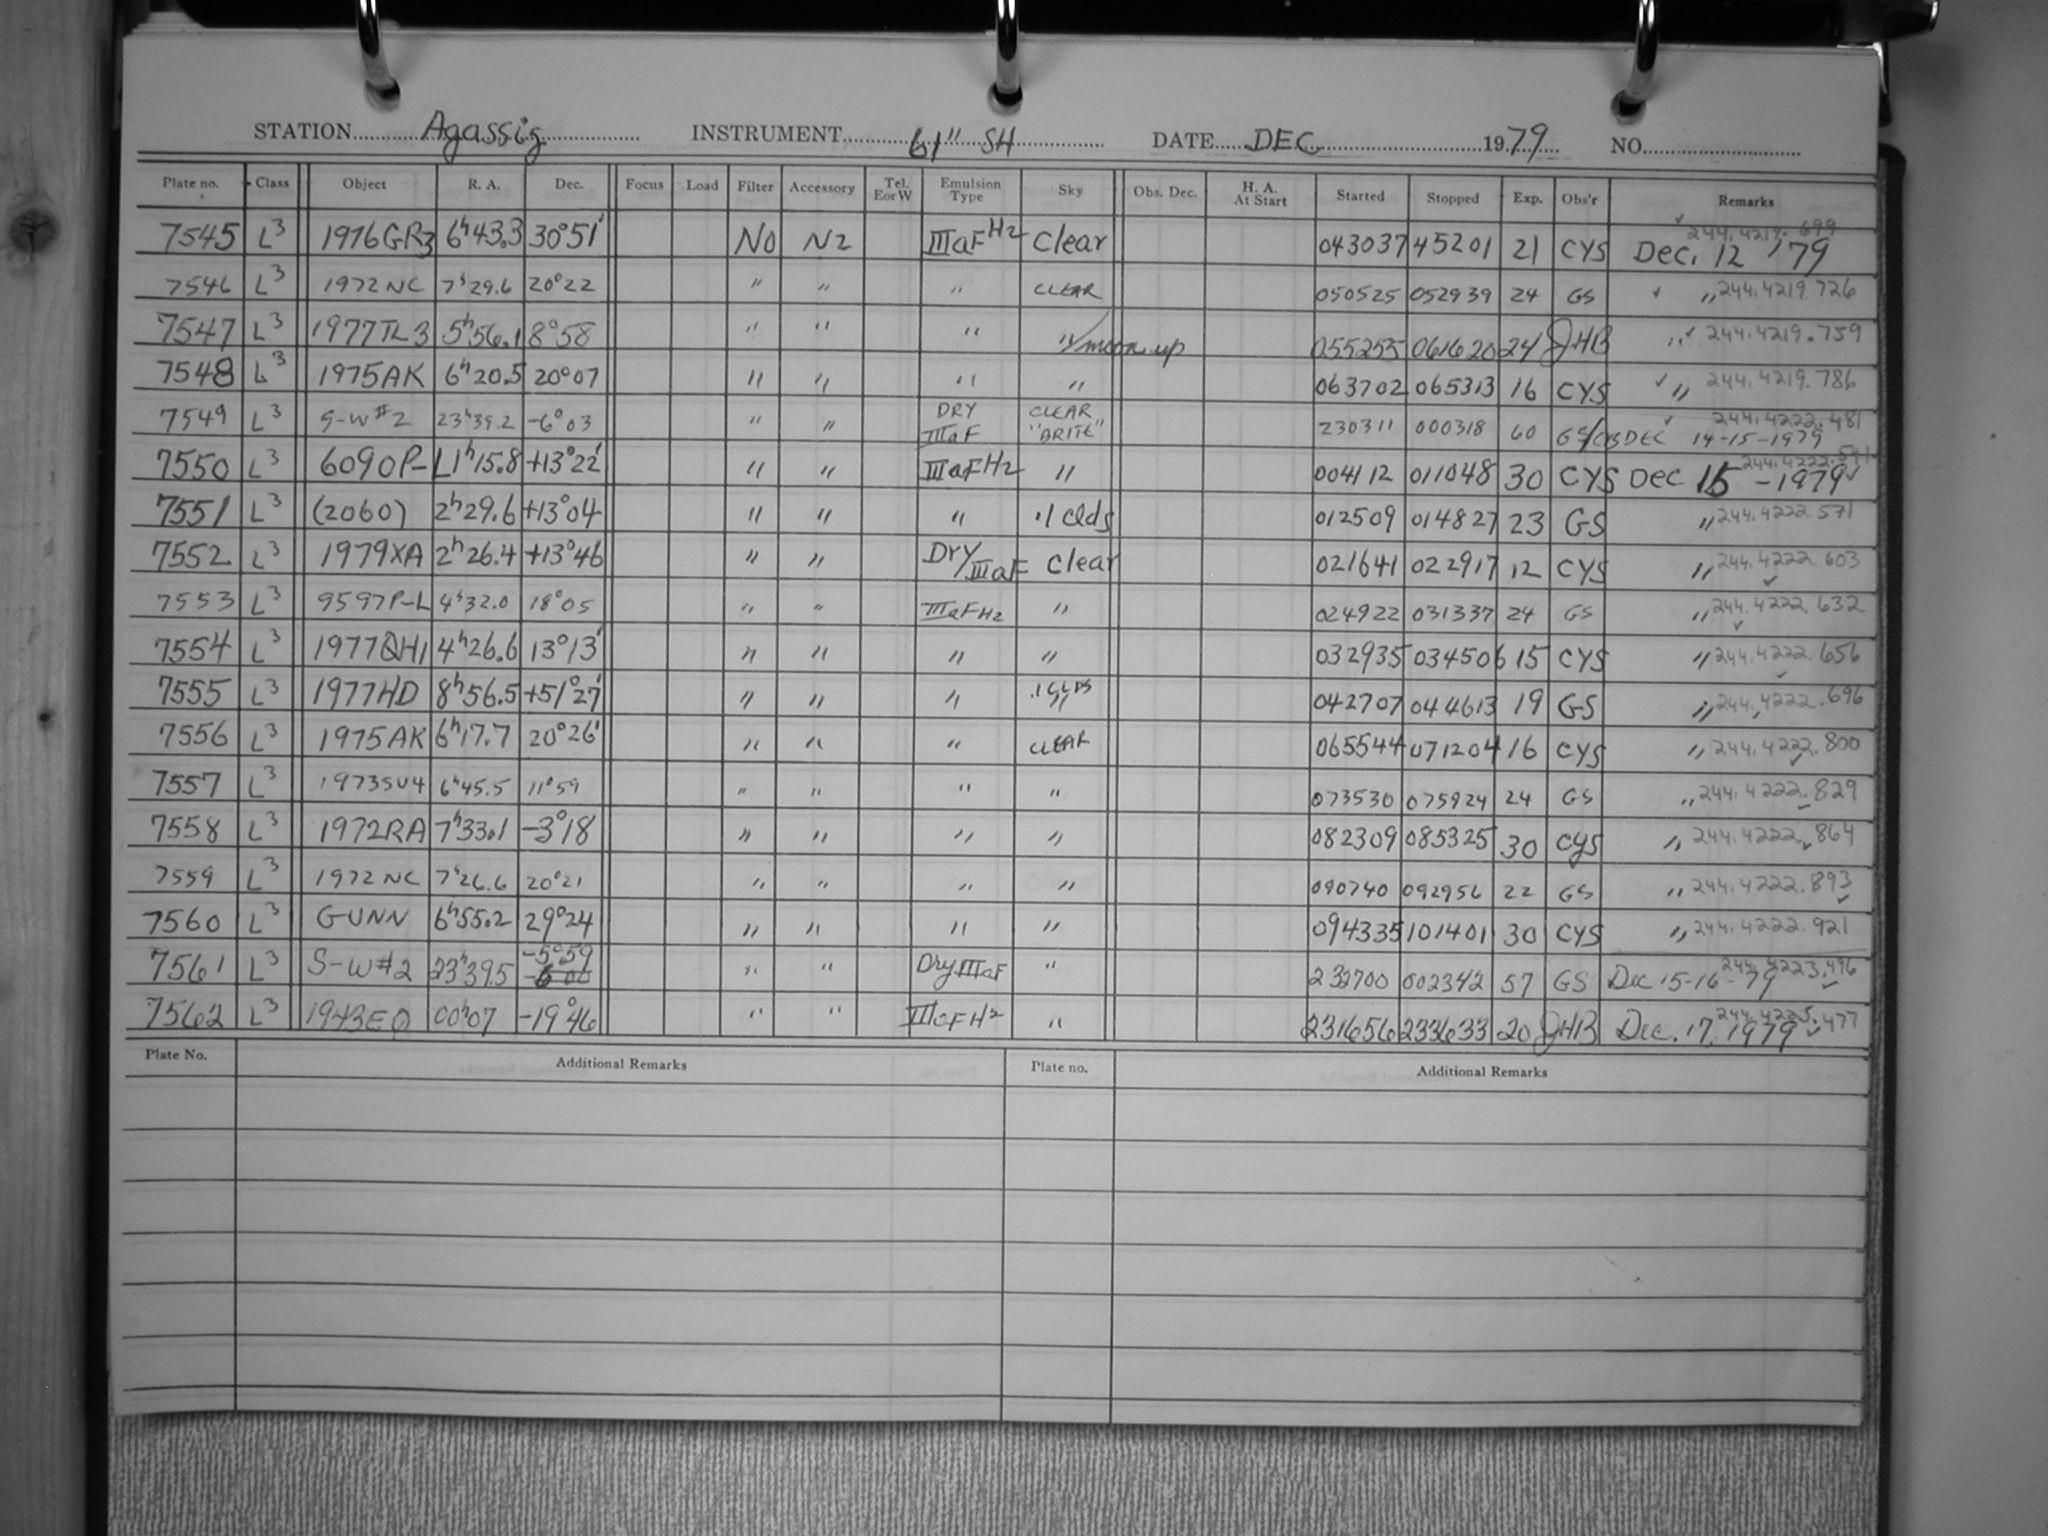 STATION Agassiz INSTRUMENT 61" SH DATE DEC 1979 NO.
Plate no. Class Object R. A. Dec. Focus Load Filter Accessory Tel. E or W Emulsion Type Sky Obs. Dec. H. A. At Start Started Stopped Exp. Obs'r Remarks
7545 L3 1976GR3 6h43.3 30°51' NO N2 IIIaFH2 Clear 043037 45201 21 CYS Dec. 12 '79 244.4219.699
7546 L3 1972NC 7h29.6 20°22 " " " CLEAR 050525 052939 24 GS " 244.4219.726
7547 L3 1977TL3 5h56.1 8°58 " " " "/moon up 055255 061620 24 JHB " 244.4219.759
7548 L3 1975AK 6h20.5 20°07 " " " " 063702 065313 16 CYS " 244.4219.786
7549 L3 S-W#2 23h39.2 -6°03 " " DRY IIIaF CLEAR "BRITE" 230311 000318 60 GS/CB DEC 14-15-1979 244.4222.481
7550 L3 6090P-L 1h15.8 +13°22' " " IIIaFH2 " 004112 011048 30 CYS Dec 15-1979
7551 L3 (2060) 2h29.6 +13°04 " " " .1 Clds 012509 014827 23 GS " 244.4222.571
7552 L3 1979XA 2h26.4 +13°46 " " Dry IIIaF Clear 021641 022917 12 CYS " 244.4222.603
7553 L3 9597P-L 4h32.0 18°05 " " IIIaFH2 " 024922 031337 24 GS " 244.4222.632
7554 L3 1977QH1 4h26.6 13°13' " " " " 032935 034506 15 CYS " 244.4222.656
7555 L3 1977HD 8h56.5 +51°27' " " " .1 CLDS " 042707 044613 19 GS " 244.4222.696
7556 L3 1975AK 6h17.7 20°26' " " " CLEAR 065544 071204 16 CYS " 244.4222.800
7557 L3 1973SU4 6h45.5 11°59 " " " " 073530 075924 24 GS " 244.4222.829
7558 L3 1972RA 7h33.1 -3°18 " " " " 082309 085325 30 CYS " 244.4222.864
7559 L3 1972NC 7h26.6 20°21 " " " " 090740 092956 22 GS " 244.4222.893
7560 L3 GUNN 6h55.2 29°24 " " " " 094335 101401 30 CYS " 244.4222.921
7561 L3 S-W#2 23h39.5 -5°59 " " Dry IIIaF " 232700 002342 57 GS Dec 15-16-79 244.4223.496
7562 L3 1943EQ 00h07 -19°46 " " IIIaFH2 " 231656 233633 20 JHB Dec. 17, 1979 244.4225.477
Plate No. Additional Remarks Plate no. Additional Remarks